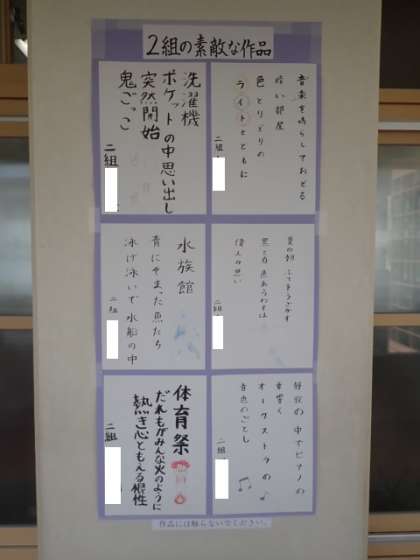 2組の素敵な作品
音楽を鳴らしておどる
暗い部屋
色とりどりの
ライトとともに
二組
洗濯機
ポケットの中思い出し
突然開始
鬼ごっこ
二組
夏の朝
二組
水族館
青にそまった魚たち
泳げ泳いで水船の中
二組
静寂の中でピアノの
音響く
オーケストラの
音色のごとし
二組
体育祭
だれもがみんな火のように
熱き心ともえる個性
二組
作品には触らないでください。